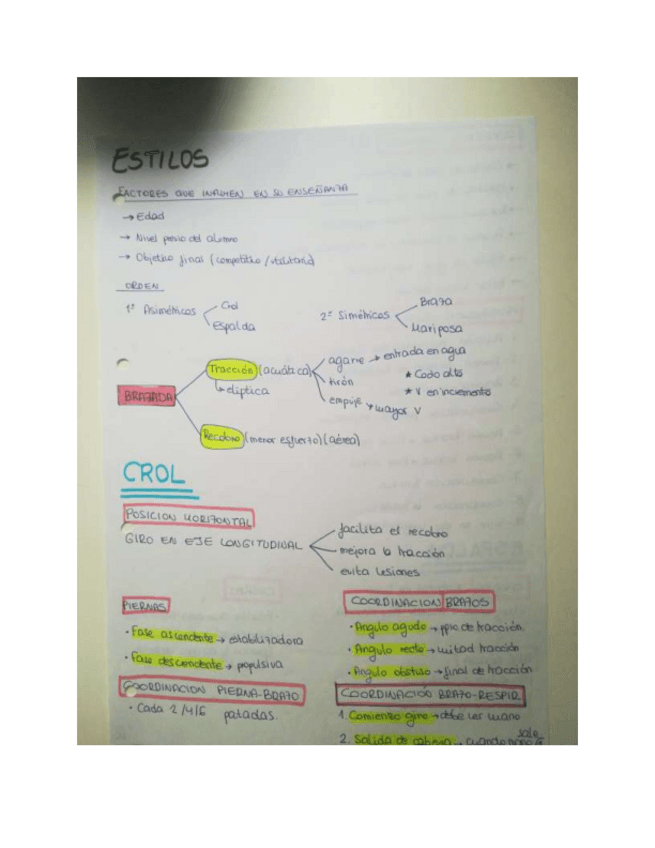 ESTILOS
FACTORES QUE INFLUYEN EN SU ENSEÑANZA
→ Edad
→ Nivel previo del alumno
→ Objetivo final (competitivo / utilitario)
ORDEN
1º Asimétricos
Crol
Espalda
2º Simétricos
Braza
Mariposa
BRAZADA
Tracción (acuática)
↳ elíptica
agarre → entrada en agua
tirón
★ Codo alto
★ V en incremento
empuje → mayor V
Recobro (menor esfuerzo) (aérea)
CROL
POSICION HORIZONTAL
GIRO EN EJE LONGITUDINAL
facilita el recobro
mejora la tracción
evita lesiones
PIERNAS
· Fase ascendente → estabilizadora
· Fase descendente → propulsiva
COORDINACION PIERNA-BRAZO
· Cada 2/4/6 patadas.
COORDINACION BRAZOS
· Angulo agudo → ppio de tracción.
· Angulo recto → mitad tracción
· Angulo obstuso → final de tracción
COORDINACIÓN BRAZO-RESPIR
1. Comienzo giro → debe ver mano
2. Salida de cabeza → cuando mano sale